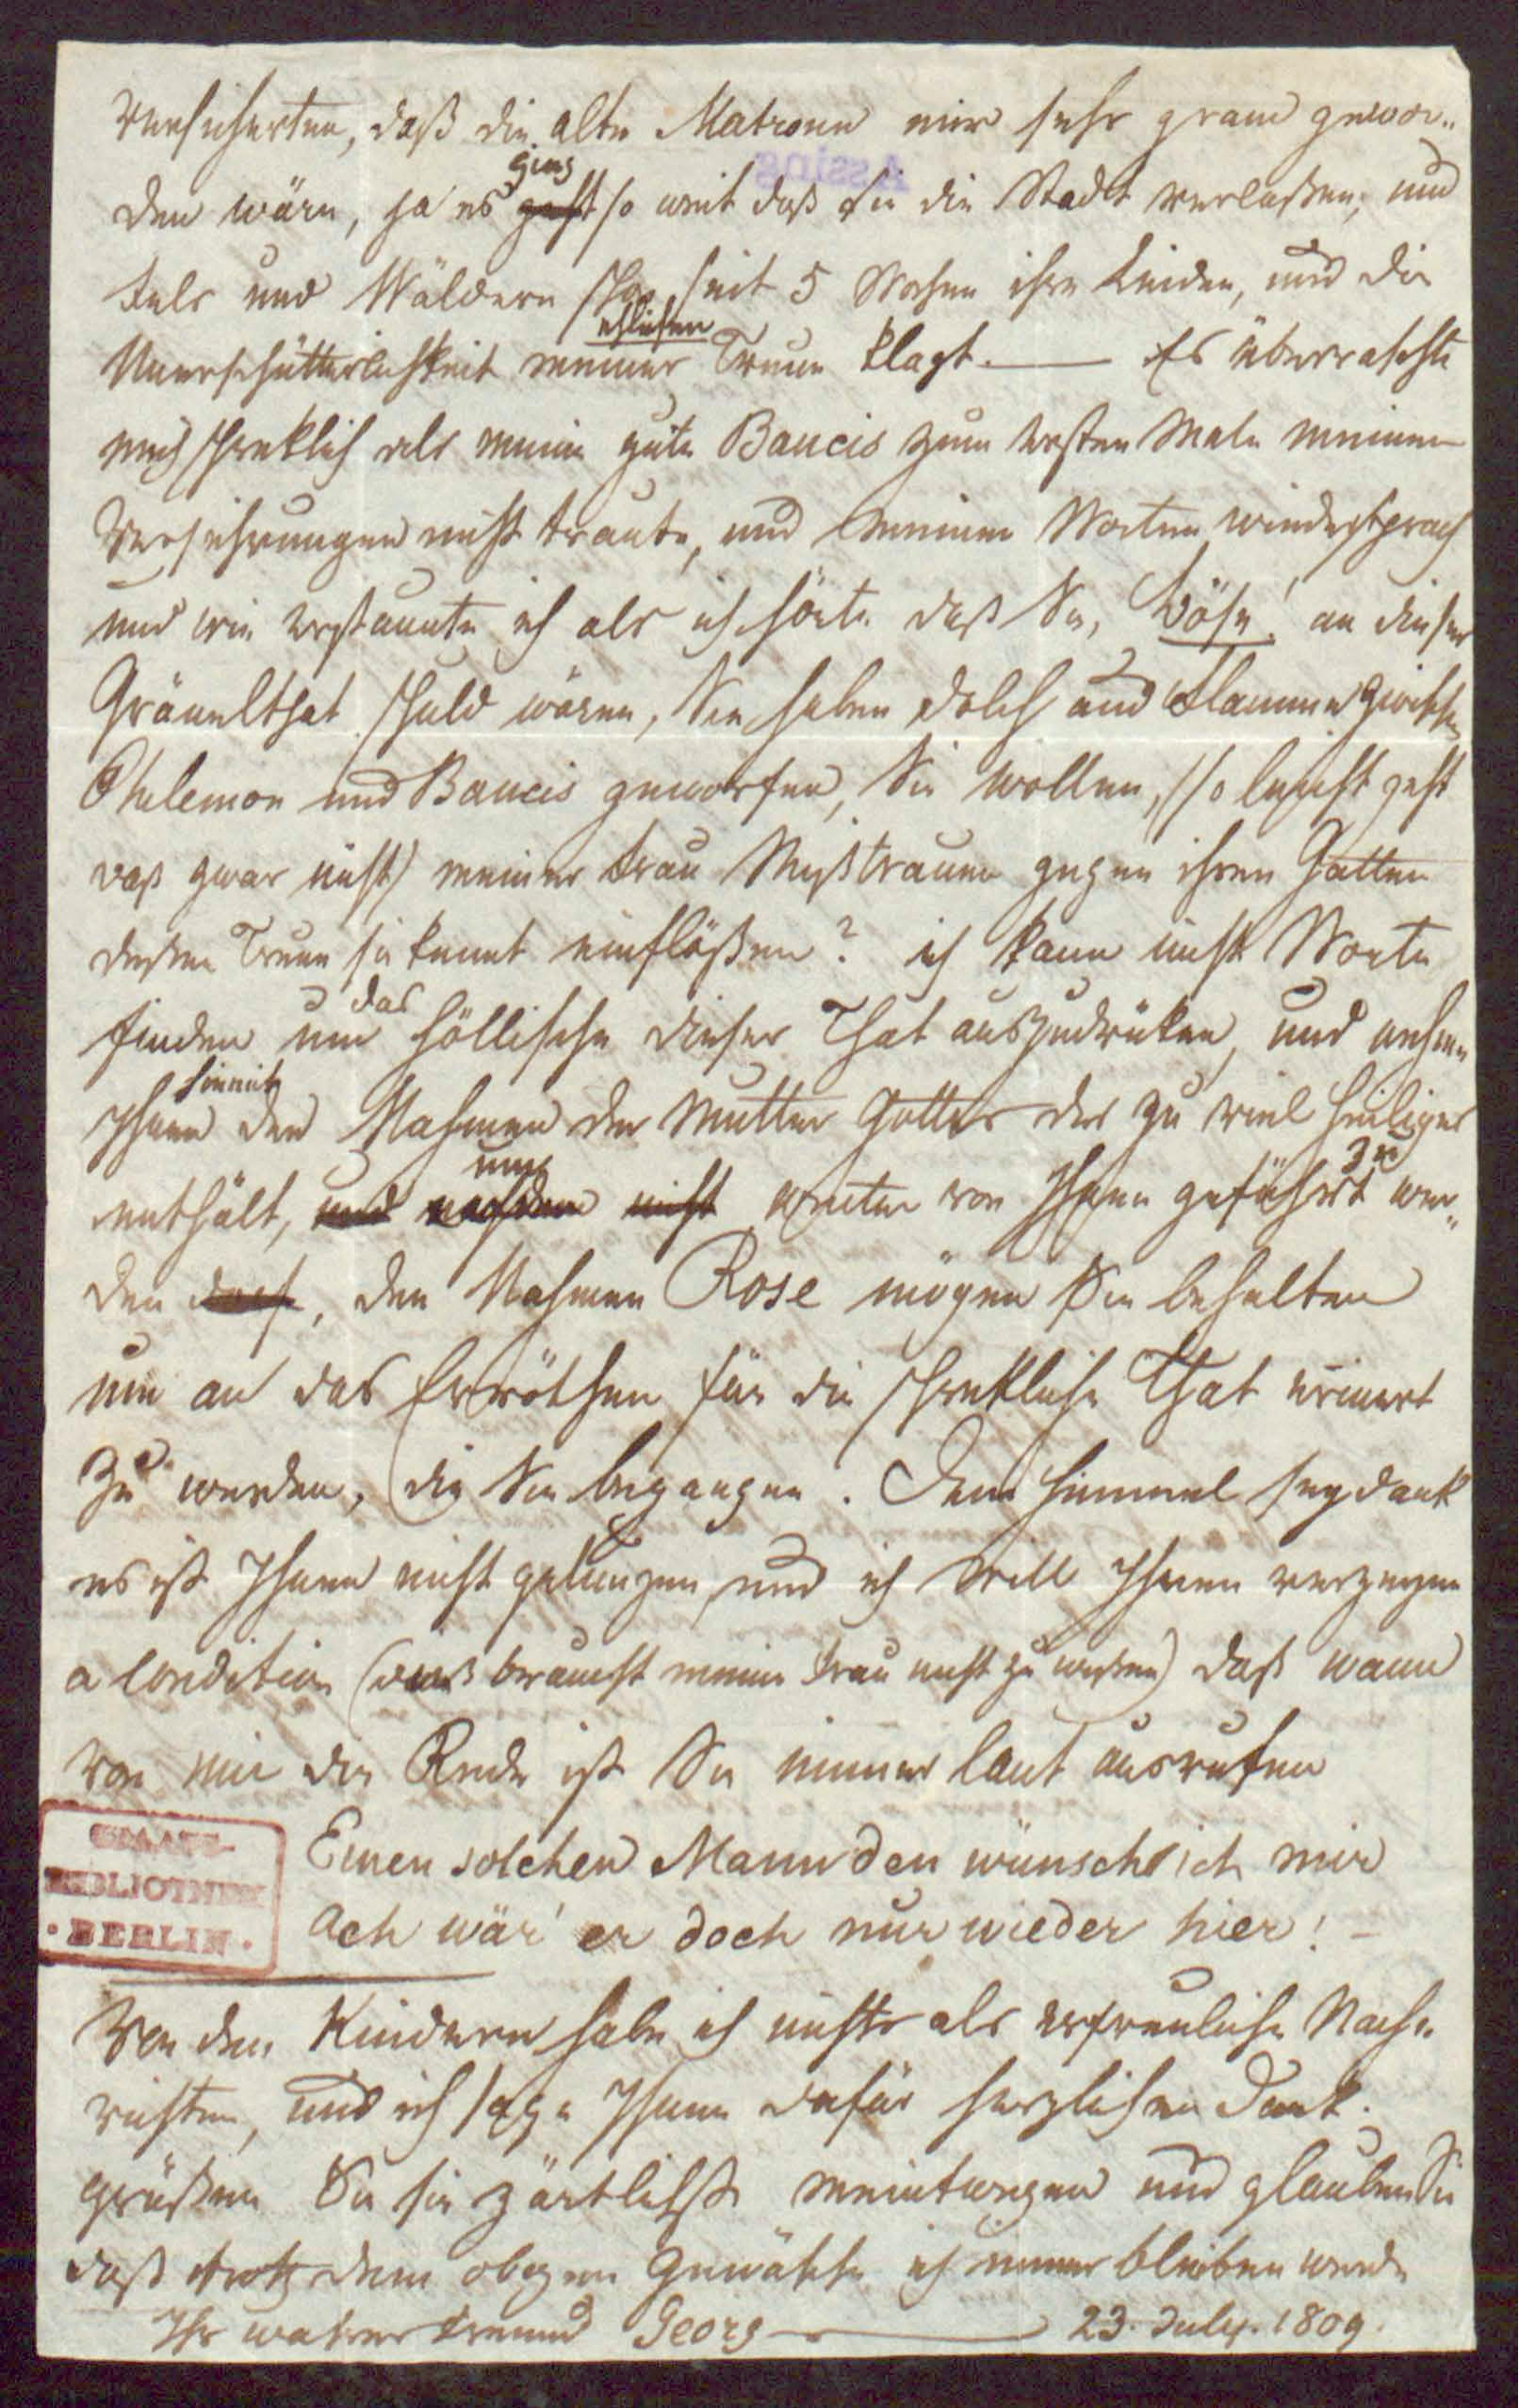 versicherten, daß die alte Matrone mir sehr gram gewor-
Assing
den wäre, ja es geht ging so weit daß sie die Stadt verlaßen, und
Fels und Wäldern schon seit 5 Wochen ihre Leiden, und die
Unerschütterlichkeit meiner ehlichen Treue klagt. — Es überraschte
mich schreklich als meine gute Baucis zum ersten Male meinen
Versicherungen nicht traute, und meinen Worten wiedersprach
und wie erstaunte ich als ich hörte daß Sie, Böse! an dieser
Gräuelthat schuld wären, Sie haben Dolch und Flamme zwischen
Philemon und Baucis geworfen, Sie wollen, (so leicht geht
daß zwar nicht) meiner Frau Mißtrauen gegen ihren Gatten
deßen Treue sie kennt einflößen? ich kann nicht Worte
finden um das höllische dieser That auszudrüken, und nehme
Ihnen hiemit den Nahmen der Mutter Gottes der zu viel heiliges
enthält, und nachdem nicht um weiter von Ihnen geführt zu wer-
den darf, den Nahmen Rose mögen Sie behalten
um an das Erröthen für die schrekliche That erinert
zu werden, die Sie begangen. Dem Himmel sey dank
es ist Ihnen nicht gelungen, und ich will Ihnen verzeihen
a condition (dieß braucht meine Frau nicht zu wißen) daß wann
von mir die Rede ist Sie immer laut ausrufen
Einen solchen Mann den wünsch ich mir
Ach wär' er doch nur wieder hier! —
STAATS-
BIBLIOTHEK
· BERLIN ·
Von den Kindern habe ich nichts als erfreuliche Nach-
richten, und ich sage Ihnen dafür herzlichen Dank.
grüßen Sie sie zärtlichst meintwegen und glauben Sie
daß trotz dem obigen Gewäsche ich immer bleiben werde
Ihr wahrer Freund Georg — 23. July. 1809.